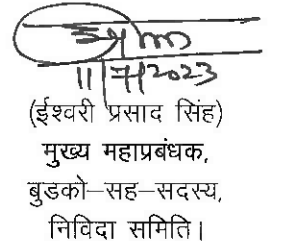 11/7/2023
(ईश्वरी प्रसाद सिंह)
मुख्य महाप्रबंधक,
बुडको–सह–सदस्य,
निविदा समिति।